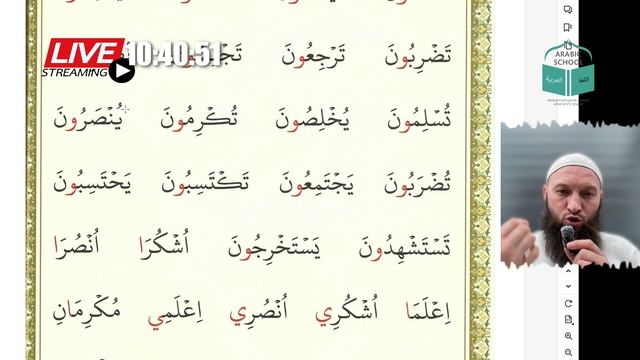 LIVE 10:40:51
STREAMING
تَضْرِبُونَ تَرْجِعُونَ
تُسْلِمُونَ يُخْلِصُونَ تُكْرِمُونَ يُنْصَرُونَ
تُضْرَبُونَ يَجْتَمِعُونَ تَكْتَسِبُونَ يَحْتَسِبُونَ
تَسْتَشْهِدُونَ يَسْتَخْرِجُونَ اُشْكُرَا اُنْصُرَا
اِعْلَمَا اُشْكُرِي اُنْصُرِي اِعْلَمِي مُكْرِمَانِ
ARABIC
SCHOOL